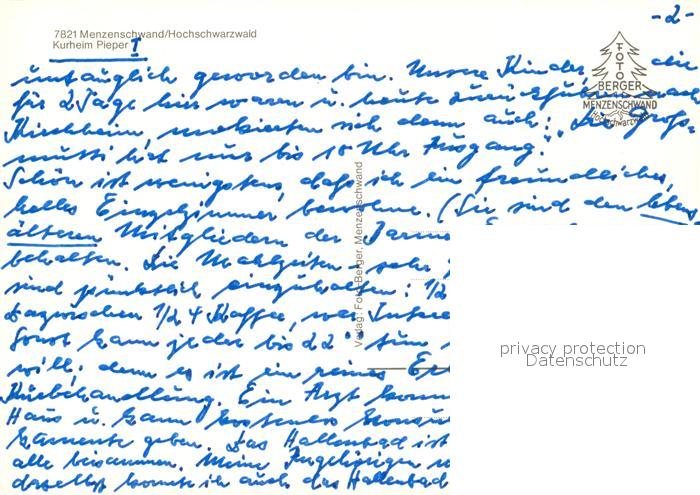 -2-
7821 Menzenschwand/Hochschwarzwald
Kurheim Pieper I
FOTO
BERGER
MENZENSCHWAND
Hochschwarzwald
untauglich geworden bin. Unsere Kinder, die
für 2 Tage hier waren u. heute zurückfuhren nach
Kirchheim, mokierten sich denn auch: „Die Groß-
mutti hat nur bis 10 Uhr Ausgang."
Schön ist wenigstens, daß ich ein freundliches,
helles Einzelzimmer bewohne. (Sie sind den lebens
älteren Mitgliedern der
behalten. Die Mahlzeiten sehr
sind pünktlich einzuhalten: 1/2
Dazwischen 1/2 4 Kaffee, wer
Sonst kann jeder bis 22°° tun
will; denn es ist ein reines
Kurbehandlung. Ein Arzt
Haus u. kann kostenlos
geben. Das Hallenbad ist
alle beisammen. Meine Angehörigen
daselbst konnte ich auch das Hallenbad
Verlag: Foto-Berger, Menzenschwand
privacy protection
Datenschutz